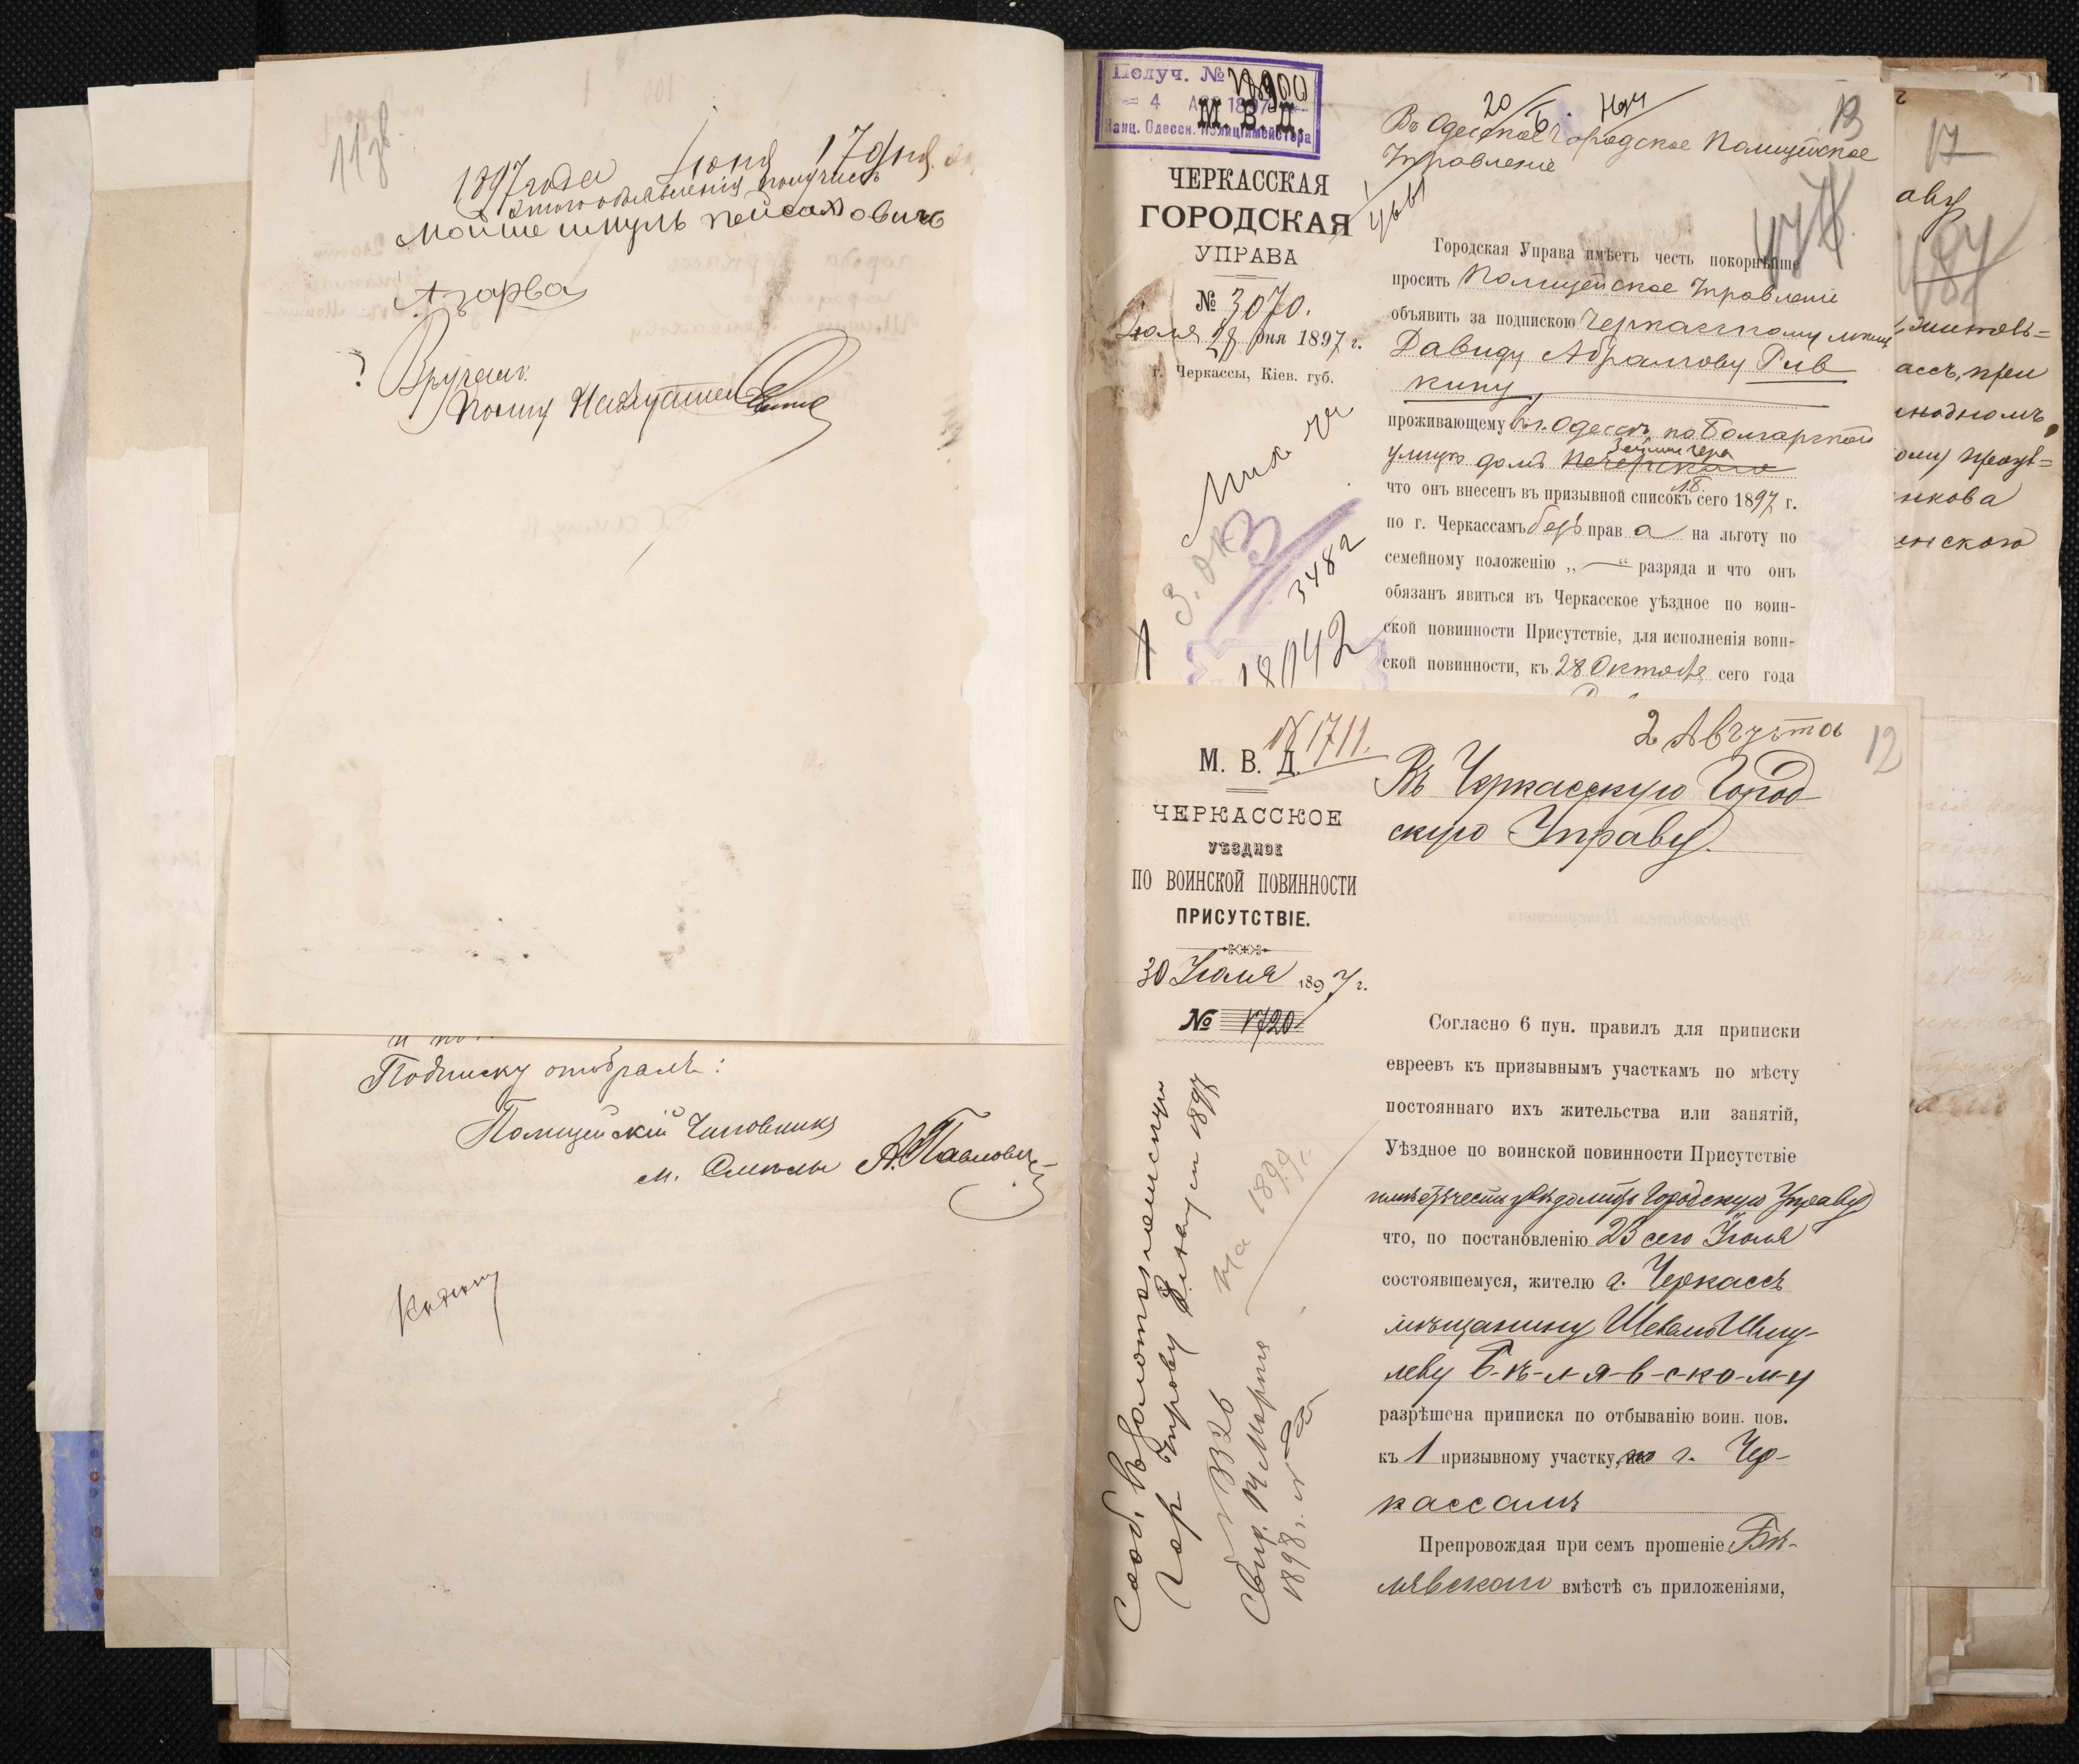 11 об.
1897 года Июня 17 дня
этого объявленія получилъ
Мойше Шмуль Пейсахович
Азарва
Вручалъ
и по
Подписку отобралъ:
Полицейскій Чиновникъ
м. Смелы А. Павлович
Копію
Получ. №
4 АВГ 1897
Канц. Одесск. Полицiймейстера
М. В. Д.
ЧЕРКАССКАЯ
ГОРОДСКАЯ
УПРАВА
№ 3070.
Іюля 28 дня 1897 г.
г. Черкассы, Кіев. губ.
3 ок
3
3482
18042
20/Б.
13
Въ Одесское Городское Полицейское
Управленіе
478
Городская Управа имѣетъ честь покорнѣйше
просить Полицейское Управленіе
объявить за подпискою Черкасскому мѣщ
Давиду Абрамову Рив
кину,
проживающему въ г. Одессѣ, по Болгарской
улицѣ домъ
что онъ внесенъ въ призывной списокъ сего 1897 г.
по г. Черкассамъ безъ прав а на льготу по
семейному положенію „—“ разряда и что онъ
обязанъ явиться въ Черкасское уѣздное по воин-
ской повинности Присутствіе, для исполненія воин-
ской повинности, къ 28 Октября сего года
17
аву
487
житель=
ассъ, при
инодномъ
ому
нкова
инского
№ 1711.
М. В. Д.
ЧЕРКАССКОЕ
УѢЗДНОЕ
ПО ВОИНСКОЙ ПОВИННОСТИ
ПРИСУТСТВІЕ.
30 Іюля 1897 г.
№ 1720
2 Августа
12
Въ Черкасскую Город
скую Управу.
Согласно 6 пун. правилъ для приписки
евреевъ къ призывнымъ участкамъ по мѣсту
постояннаго ихъ жительства или занятій,
Уѣздное по воинской повинности Присутствіе
имѣетъ честь увѣдомить Городскую Управу
что, по постановленію 23 сего Іюля
состоявшемуся, жителю г. Черкассъ
мѣщанину Шевелю Шму-
леву Б-ѣ-л-я-в-с-ко-м-у
разрѣшена приписка по отбыванію воин. пов.
къ 1 призывному участку, по г. Чер-
кассамъ
Препровождая при семъ прошеніе Бѣ-
лявскаго вмѣстѣ съ приложеніями,
Сооб. въ Золотоношскую
Гор Управу 1897
на 1899 г.
3326
14 Марта
1898 г.